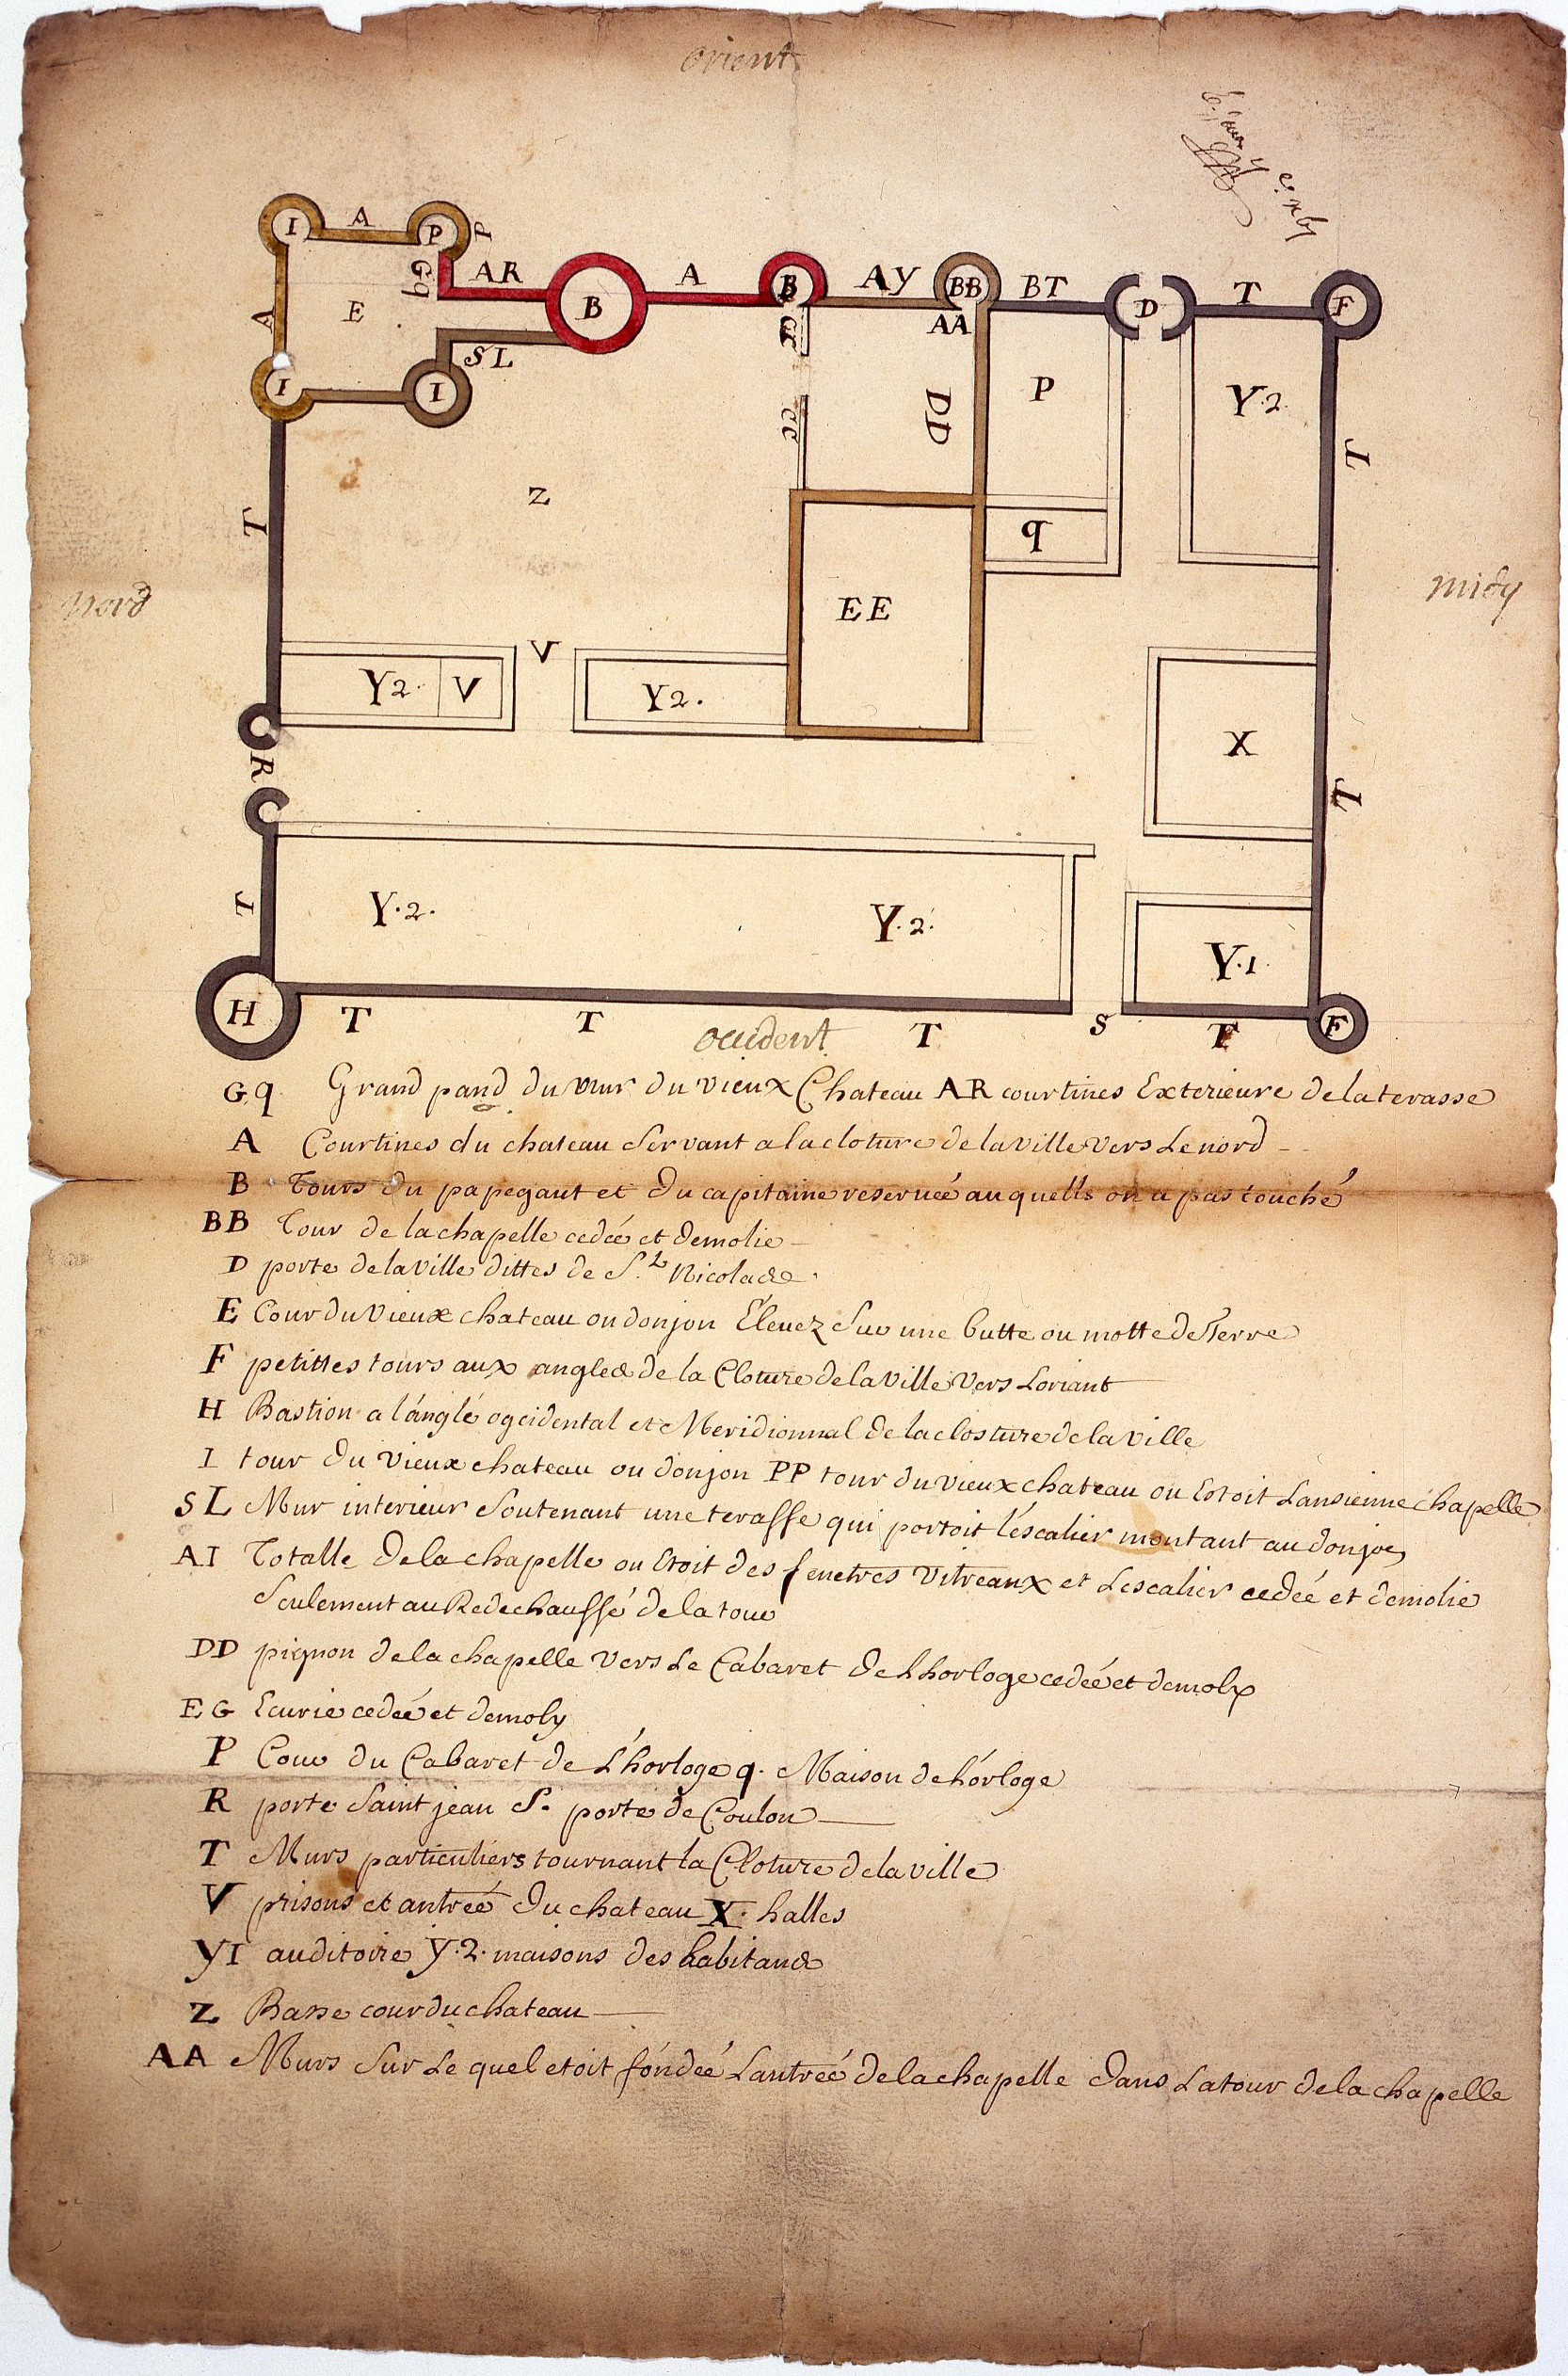 orient
I A P P
Gq AR B A B AY BB BT D T F
A E AA
SL
I I DD P Y.2. T
cc
T Z q
nord EE midy
V
Y2. V Y2. X
R T
T Y.2. Y.2. Y.1.
H T T occident T S T F
Gq. Grand pand du mur du vieux Chateau AR courtines Exterieure de la terasse
A Courtines du chateau Servant a la cloture de la ville vers Le nord
B Tours du papegaut et du capitaine reservéé au quells on a pas touché
BB Tour de la chapelle cedéé et demolie
D porte de la ville dittes de St Nicolas
E Cour du Vieux chateau ou donjon Élevez Sur une butte ou motte de Terre
F petittes tours aux angles de la Cloture de la ville vers Loriant
H Bastion a l'anglé occidental et Meridionnal de la closture de la ville
I tour du vieux chateau ou donjon PP tour du vieux chateau ou Estoit Lansienne chapelle
SL Mur interieur Soutenant une terasse qui portoit l'éscalier montant au donjon
AI Totalle de la chapelle ou Etoit des fenetres vitreaux et Lescalier cedéé et demolie
Seulement au Redechaussé de la tour
DD pignon de la chapelle vers Le Cabaret de Lhorloge cedéé et demoly
EG Ecurie cedéé et demoly
P Cour du Cabaret de L'horloge q. Maison de hórloge
R porte Saint jean S. porte de Coulon
T Murs particuliers tournant la Cloture de la ville
V prisons et antréé du chateau X. halles
Y1 auditoire Y.2. maisons des habitans
Z Basse cour du chateau
AA Murs Sur Le quel etoit fóndéé Lantréé de la chapelle dans La tour de la chapelle